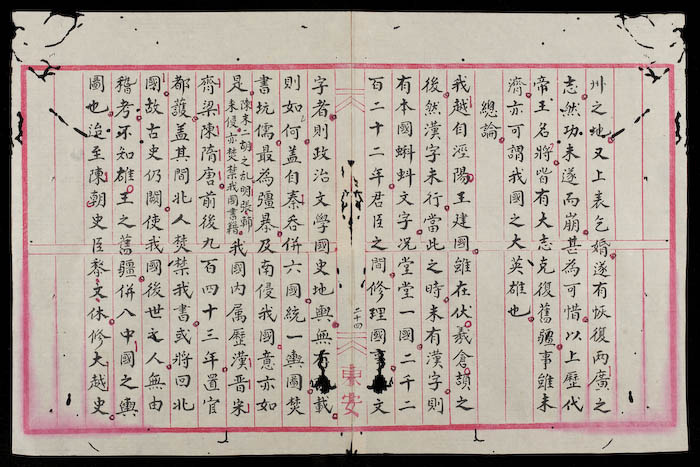 州之地又上表乞婚遂有恢復兩廣之
志然功未遂而崩甚為可惜以上歷代
帝王名將皆有大志克復舊疆事雖未
濟亦可謂我國之大英雄也
總論
我越自涇陽王建國雖在伏羲倉頡之
後然漢字未行當此之時未有漢字則
有本國蝌蚪文字况堂堂一國二千二
百二十二年君臣之間修理國文
二十四
東安
字者則政治文學國史地輿無載
則如何蓋自秦吞併六國統一輿圖焚
書坑儒最為彊暴及南侵我國意亦如
是陳末二胡之乱明張輔來侵亦焚禁我國書籍我國内属歷漢晉宋
齊梁陳隋唐前後九百四十三年置官
都護蓋其間北人焚禁我書或將回北
國故古史仍闕使我國後世之人無由
稽考不知雄王之舊疆併入中國之輿
圖也迨至陳朝史臣黎文休修大越史